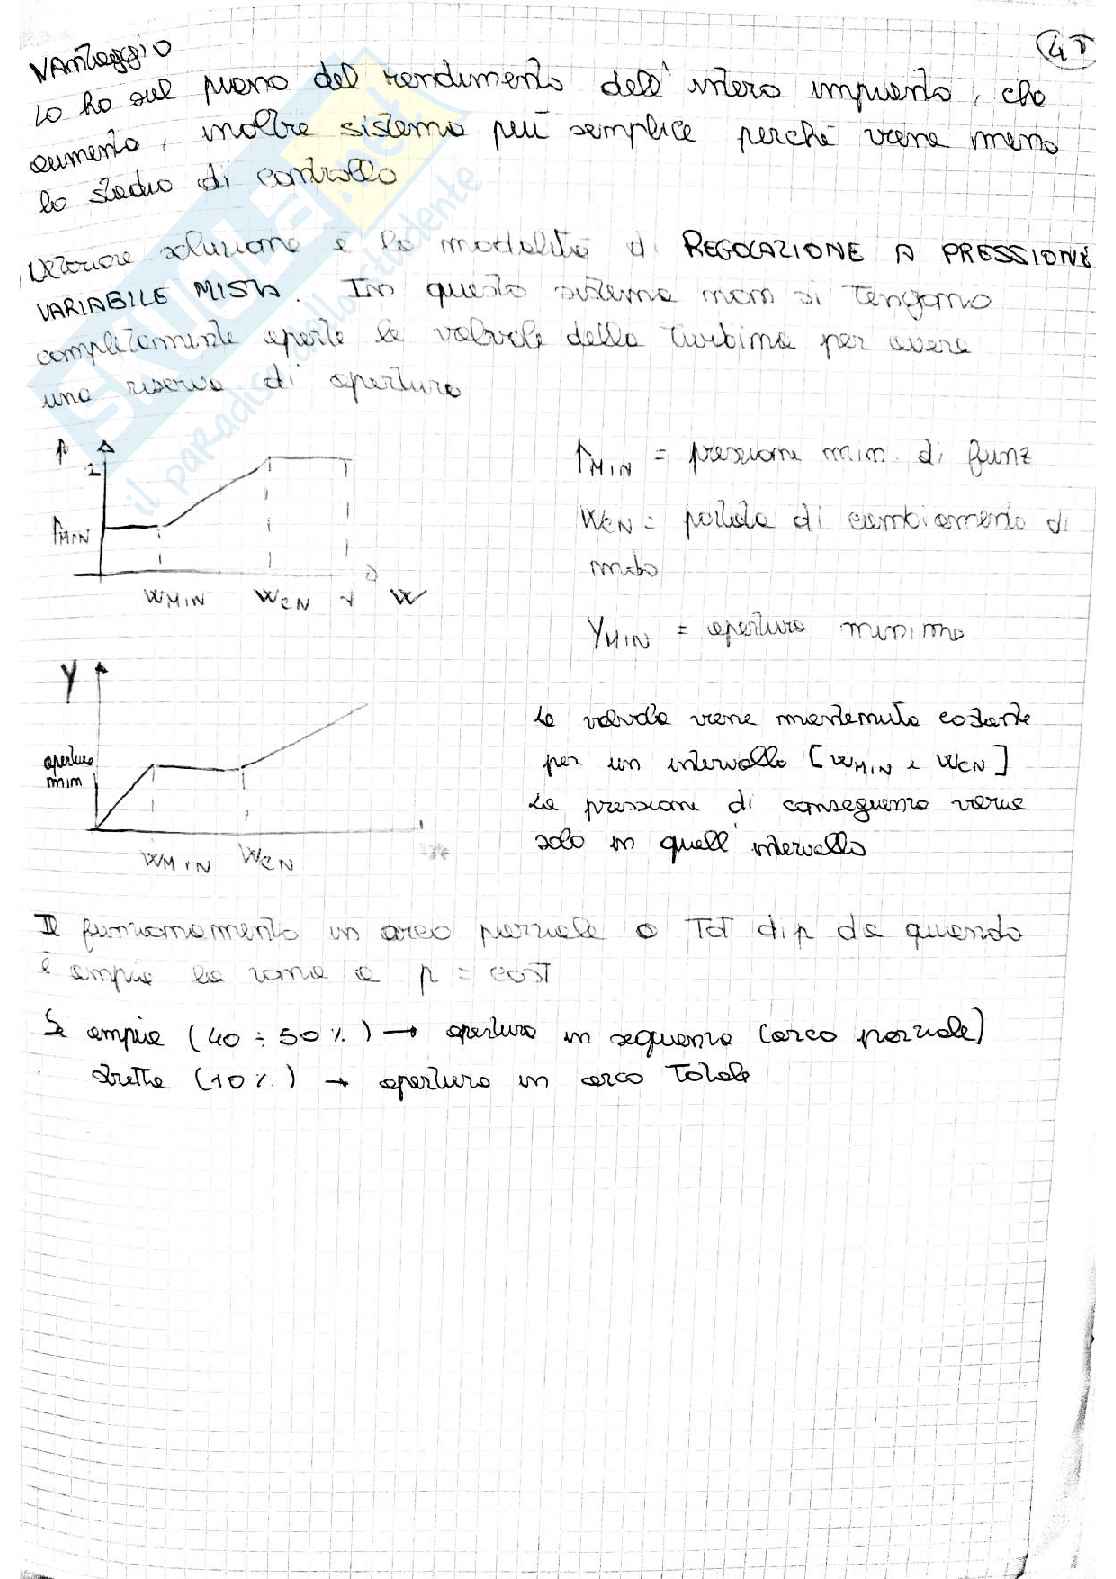 45
VANTAGGIO
Lo ho sul piano del rendimento dell'intero impianto, che
aumenta, inoltre sistema più semplice perché viene meno
lo stadio di controllo
Ulteriore soluzione è la modalità di REGOLAZIONE A PRESSIONE
VARIABILE MISTA. In questo sistema non si tengono
completamente aperte le valvole della turbina per avere
una riserva di apertura
P
1
PMIN
WMIN WCN 1 W
PMIN = pressione min. di funz
WCN = portata di cambiamento di
modo
YMIN = apertura minima
Y
apertura
min
WMIN WCN
La valvola viene mantenuta costante
per un intervallo [WMIN e WCN]
La pressione di conseguenza varia
solo in quell'intervallo
Il funzionamento in arco parziale o Tot dip da quando
è ampia la zona a p = cost
Se ampia (40 ÷ 50 %) → apertura in sequenza (arco parziale)
stretta (10 %) → apertura in arco Totale
SKUOLA.net
il paradiso dello studente